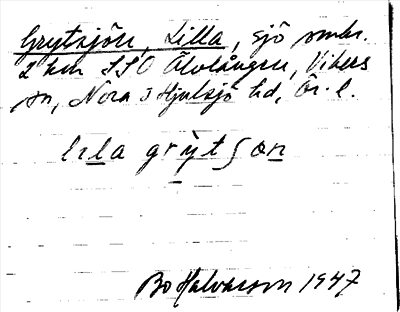 Grytsjön, Lilla, sjö omkr.
2 km SSO Älvlången, Vikers
sn, Nora o Hjulsjö hd, Ör. l.
lıla grỳtʃøn
Bo Halvarson 1947